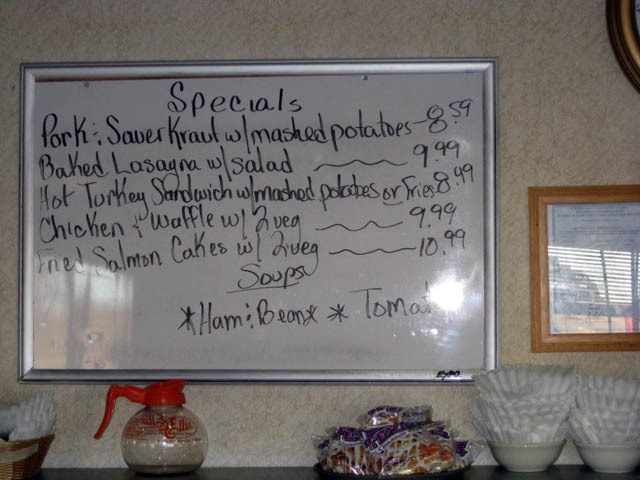 Specials
Pork & Sauerkraut w/mashed potatoes - 8.59
Baked Lasagna w/salad 9.99
Hot Turkey Sandwich w/mashed potatoes or Fries 8.99
Chicken & Waffle w/ 2 veg 9.99
Fried Salmon Cakes w/ 2 veg 10.99
Soups
*Ham & Bean* * Tomat
EXPO